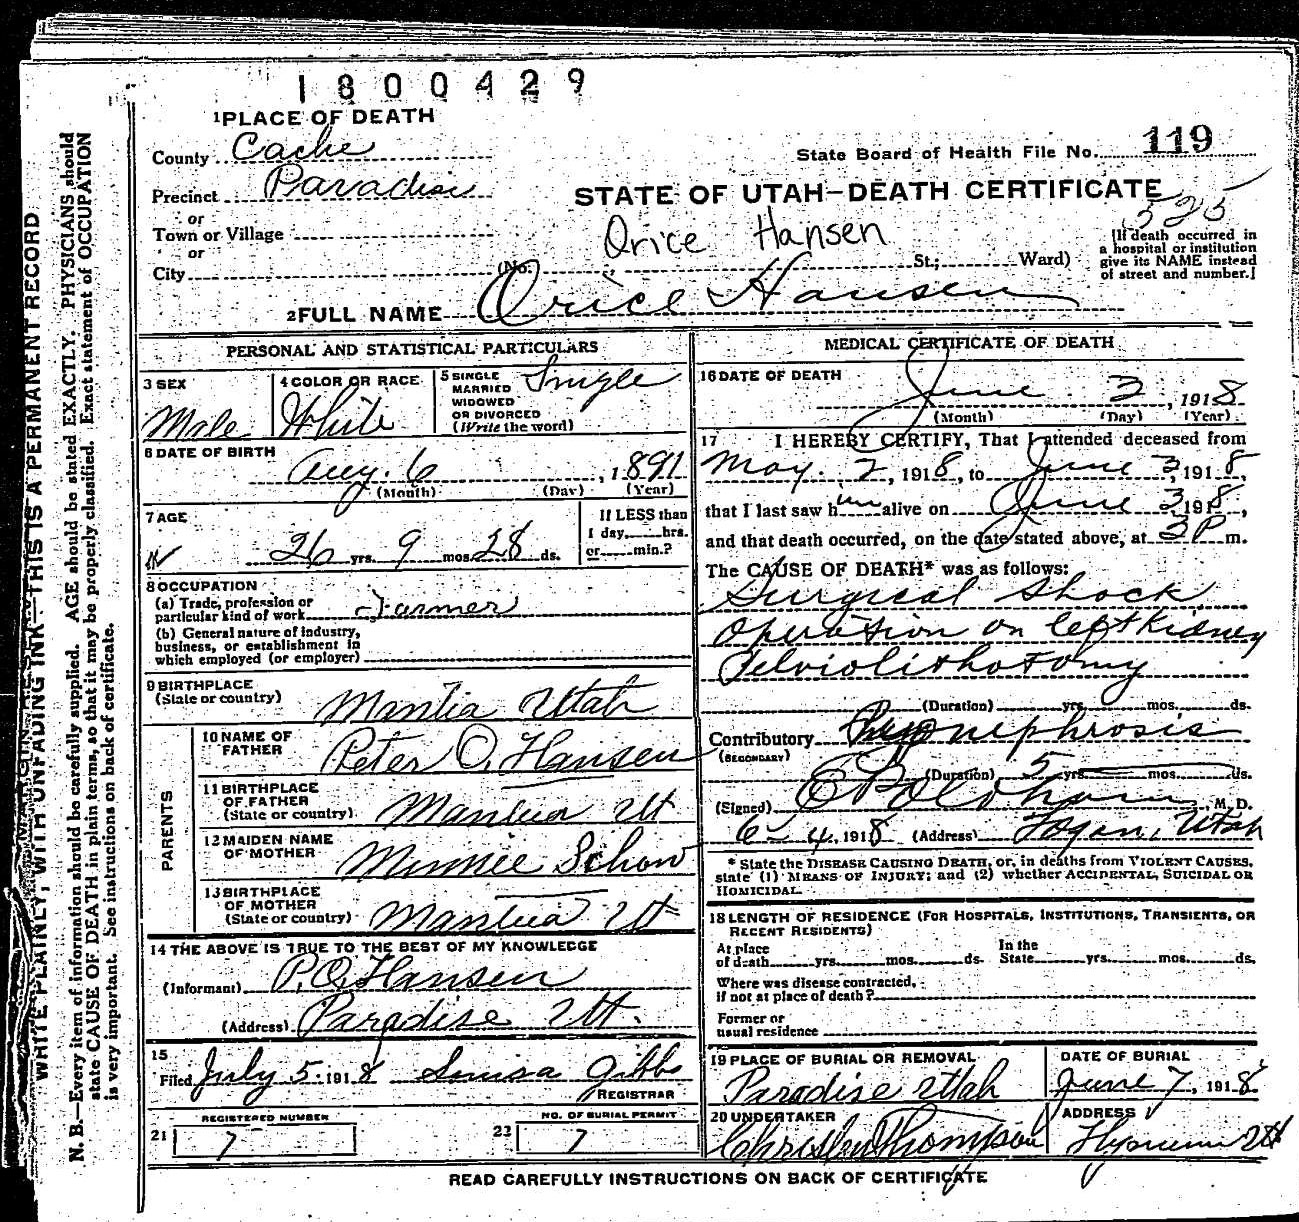 1800429
1 PLACE OF DEATH
County Cache
State Board of Health File No. 119
Precinct Paradise
STATE OF UTAH-DEATH CERTIFICATE
525
or
Town or Village
or
City
Orice Hansen
(No. St.; Ward)
[If death occurred in
a hospital or institution
give its NAME instead
of street and number.]
2 FULL NAME Orice Hansen
PERSONAL AND STATISTICAL PARTICULARS
3 SEX
Male
4 COLOR OR RACE
White
5 SINGLE
MARRIED
WIDOWED
OR DIVORCED
(Write the word)
Single
6 DATE OF BIRTH
Aug. 6, 1891
(Month) (Day) (Year)
7 AGE
26 yrs. 9 mos. 28 ds.
If LESS than
1 day, hrs.
or min.?
8 OCCUPATION
(a) Trade, profession or
particular kind of work Farmer
(b) General nature of industry,
business, or establishment in
which employed (or employer)
9 BIRTHPLACE
(State or country) Mantua Utah
PARENTS
10 NAME OF
FATHER Peter O. Hansen
11 BIRTHPLACE
OF FATHER
(State or country) Mantua Ut
12 MAIDEN NAME
OF MOTHER Minnie Schow
13 BIRTHPLACE
OF MOTHER
(State or country) Mantua Ut
14 THE ABOVE IS TRUE TO THE BEST OF MY KNOWLEDGE
(Informant) P.O. Hansen
(Address) Paradise Ut.
15
Filed July 5, 1918 Louisa Gibbs
REGISTRAR
REGISTERED NUMBER
21 7
NO. OF BURIAL PERMIT
22 7
MEDICAL CERTIFICATE OF DEATH
16 DATE OF DEATH
June 3, 1918
(Month) (Day) (Year)
17 I HEREBY CERTIFY, That I attended deceased from
May. 2, 1918, to June 3, 1918,
that I last saw him alive on June 3 1918,
and that death occurred, on the date stated above, at 3 P m.
The CAUSE OF DEATH* was as follows:
Surgical Shock
Operation on left Kidney
Pelviolithotomy
(Duration) yrs. mos. ds.
Contributory Pyonephrosis
(SECONDARY)
(Duration) 5 yrs. mos. ds.
(Signed) M. D.
6-4, 1918 (Address) Logan, Utah
* State the DISEASE CAUSING DEATH, or, in deaths from VIOLENT CAUSES,
state (1) MEANS OF INJURY; and (2) whether ACCIDENTAL, SUICIDAL OR
HOMICIDAL.
18 LENGTH OF RESIDENCE (FOR HOSPITALS, INSTITUTIONS, TRANSIENTS, OR
RECENT RESIDENTS)
At place
of death yrs. mos. ds.
In the
State yrs. mos. ds.
Where was disease contracted,
if not at place of death?
Former or
usual residence
19 PLACE OF BURIAL OR REMOVAL
Paradise Utah
DATE OF BURIAL
June 7, 1918
20 UNDERTAKER
Thompson
ADDRESS
Hyrum Ut
READ CAREFULLY INSTRUCTIONS ON BACK OF CERTIFICATE
WRITE PLAINLY, WITH UNFADING INK—THIS IS A PERMANENT RECORD
N. B.—Every item of information should be carefully supplied. AGE should be stated EXACTLY. PHYSICIANS should
state CAUSE OF DEATH in plain terms, so that it may be properly classified. Exact statement of OCCUPATION
is very important. See instructions on back of certificate.